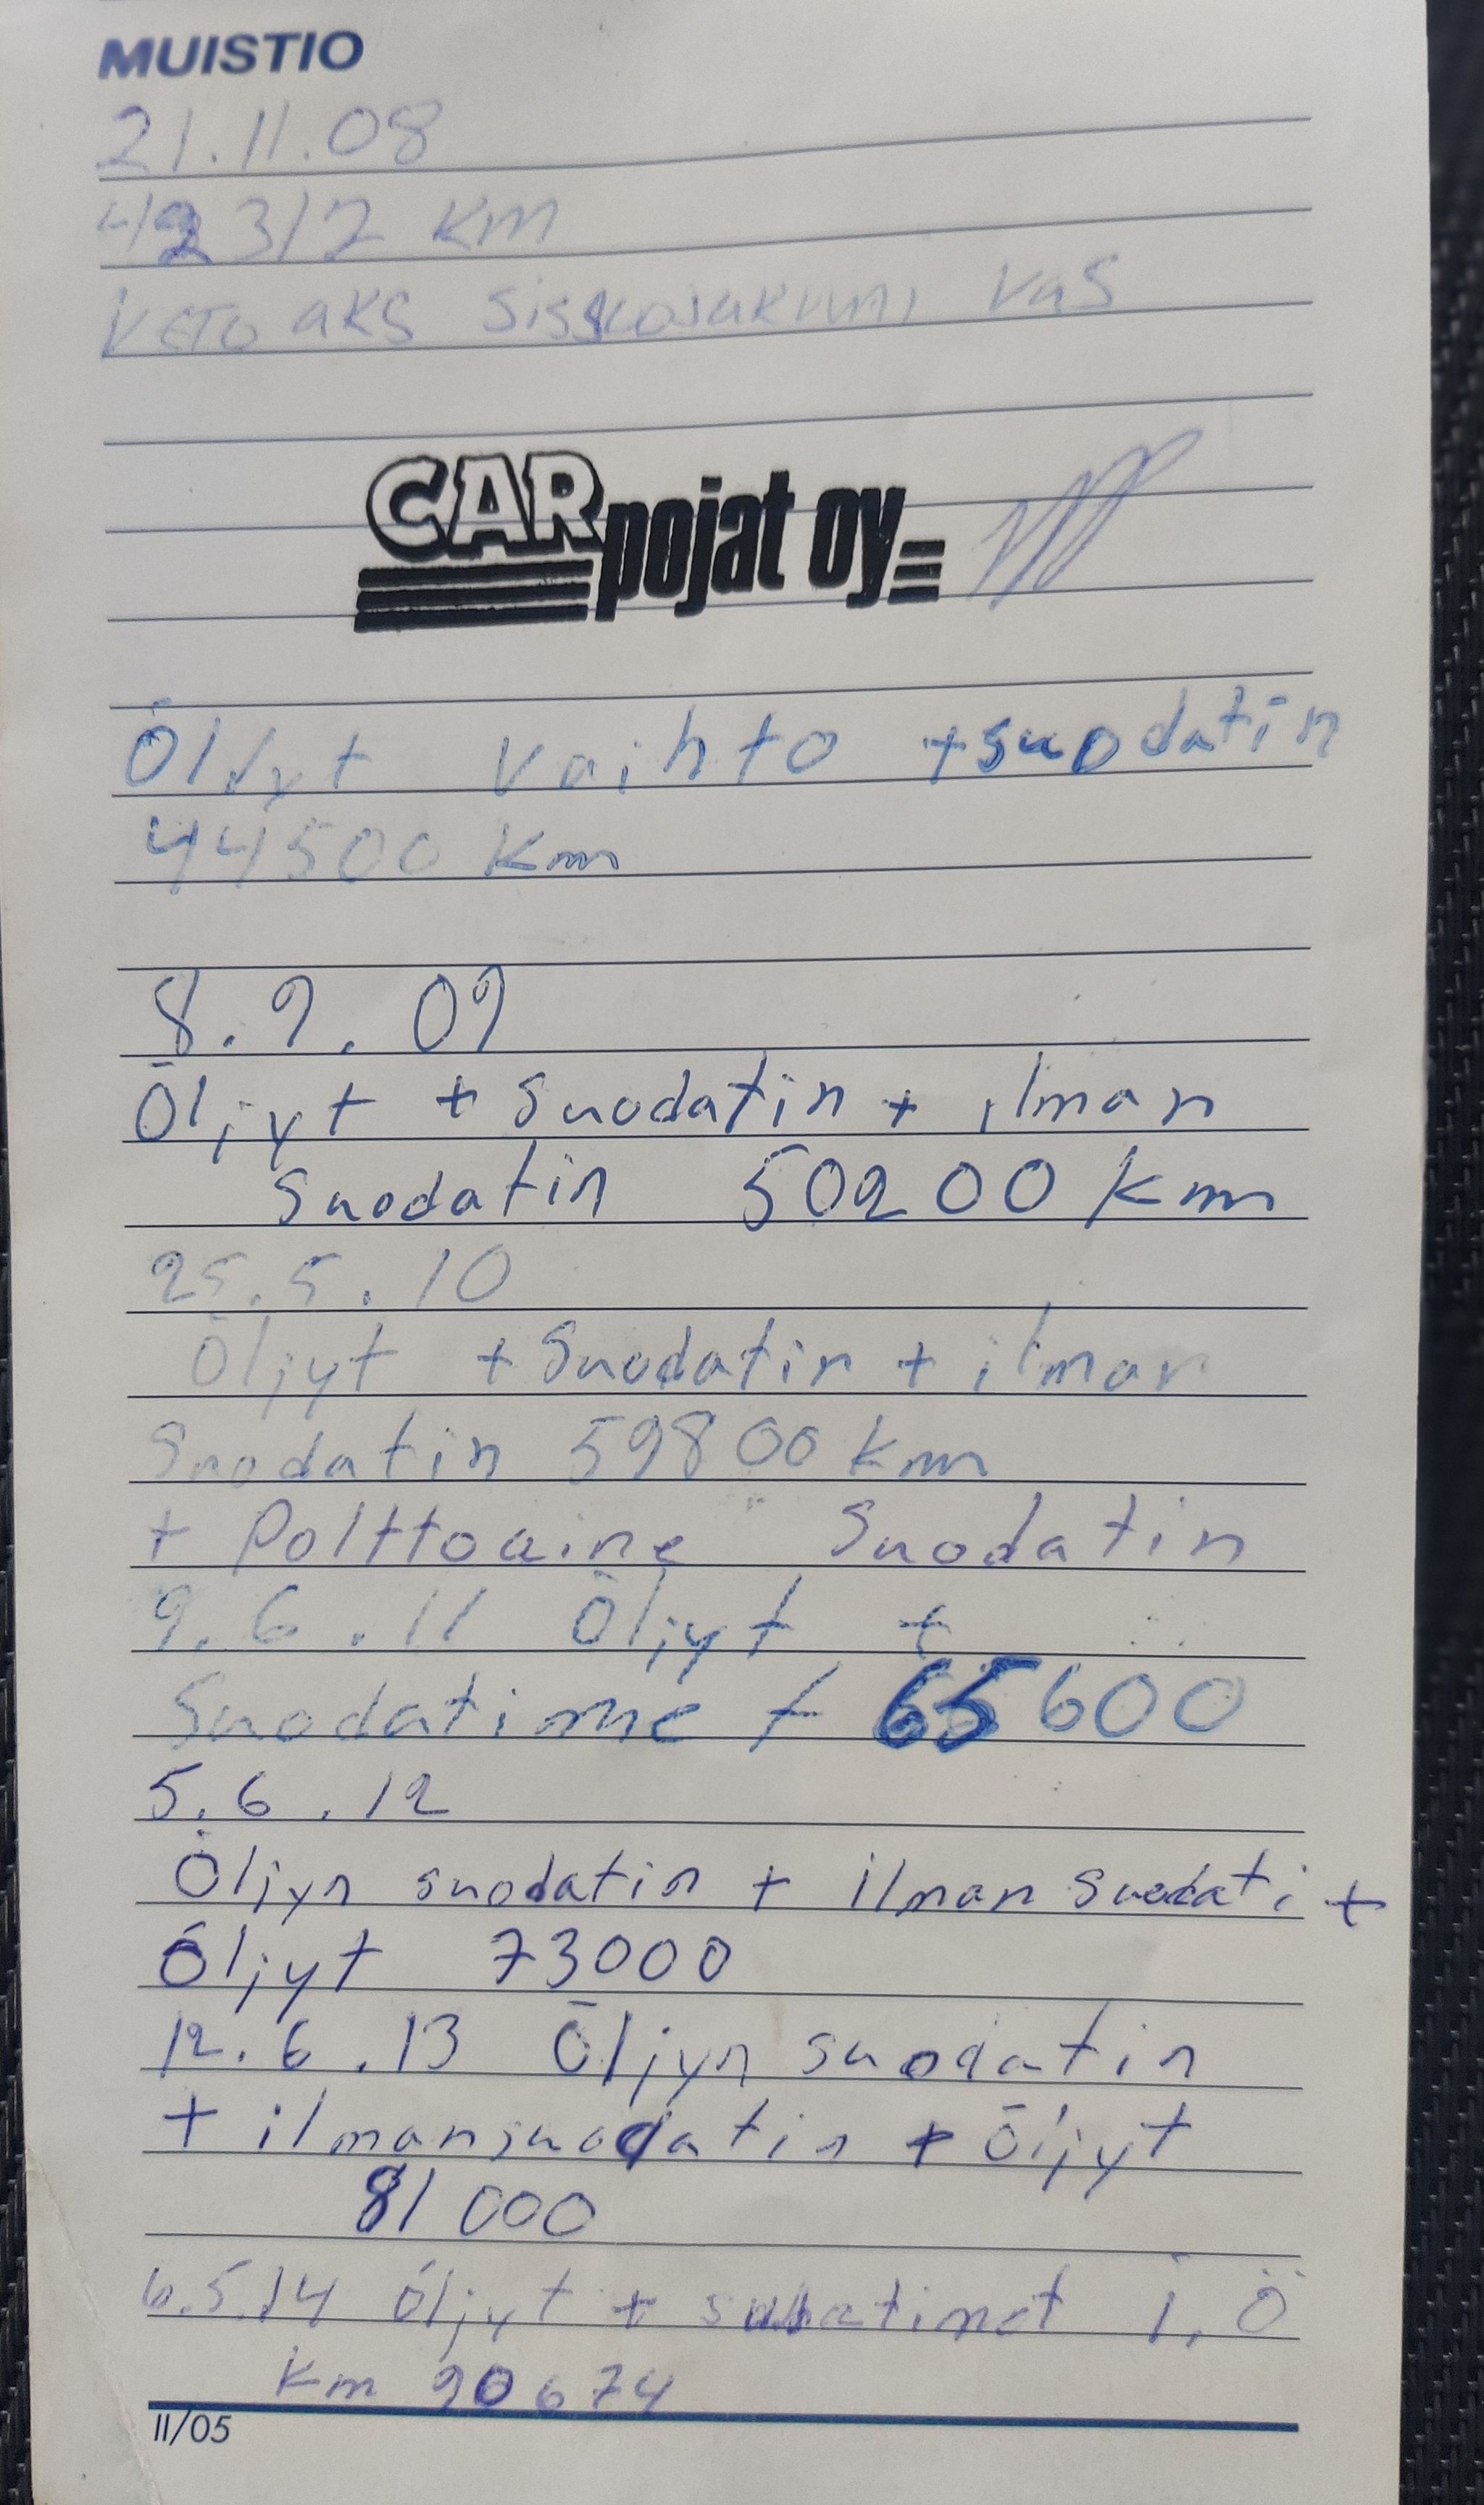 MUISTIO
21.11.08
42312 km
VETO aks sisäkojukumi vas
CAR pojat oy
Öljyt vaihto + suodatin
44500 km
8.9.09
Öljyt + suodatin + ilman
suodatin 50200 km
25.5.10
Öljyt + suodatin + ilman
suodatin 59800 km
+ Polttoaine suodatin
9.6.11 Öljyt +
suodatimet 65600
5.6.12
Öljyn suodatin + ilman suodati +
Öljyt 73000
12.6.13 Öljyn suodatin
+ ilmansuodatin + öljyt
81 000
6.5.14 öljyt + suuatimet i, ö
km 90674
II/05